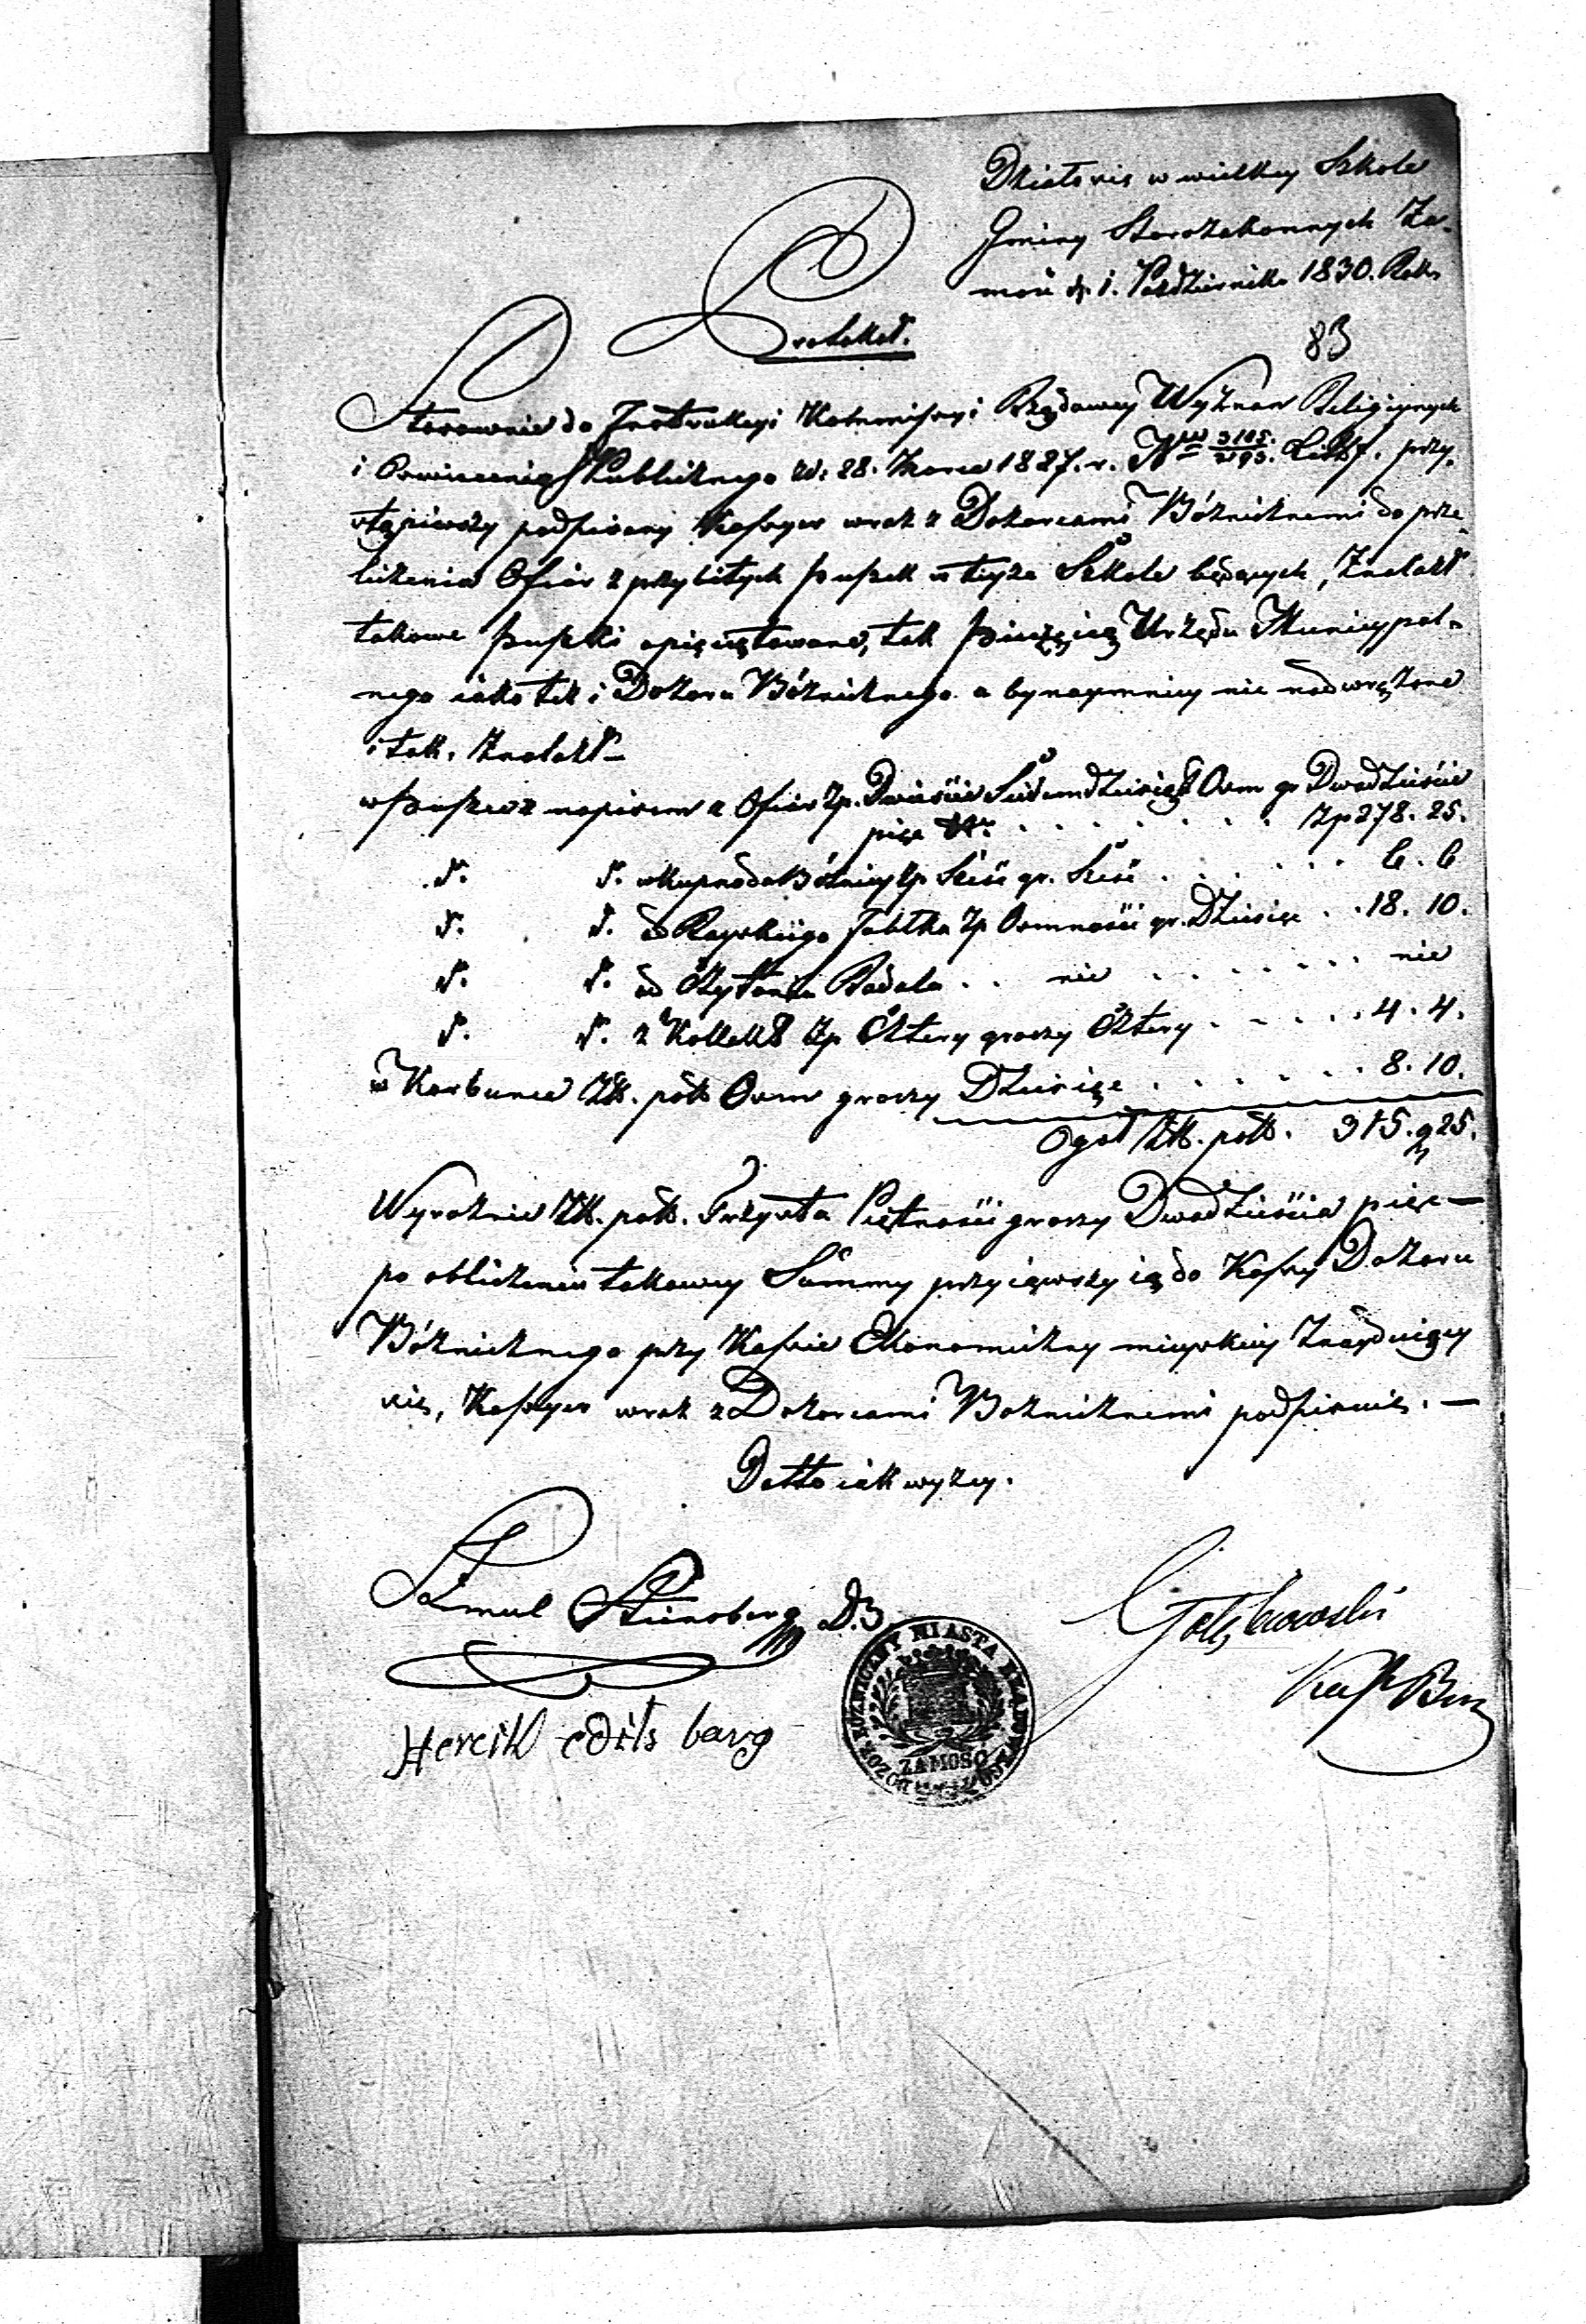 Działo się w wielkiey Szkole
Gminy Starozakonnych Za-
mość d. 1. Października 1830. Roku
83
Protokoł.
Stosownie do Instrukcyi Kommissyi Rządowey Wyznań Religiynych
i Oswiecenia Publicznego z d: 28. Marca 1827. r. przy-
stąpiwszy podpisany Kassyer wraz z Dozorcami Bóżnicznemi do prze-
liczenia Ofiar z przybitych puszek w teyże Szkole będących, Znalazł
takowe puszki opieczętowane, tak pieczęcią Urzędu Municypal-
nego iako też i Dozoru Bóżnicznego a bynaymniey nie nadwerężone
i tak. Znalazł —
w puszce z napisem z Ofiar Zp. Dwieście Siedmdziesiąt Osm gr Dwadzieścia
pięć . . . . . . . . Zp 278. 25.
d. d. wkupno do Bóżnicy Zp Sześć gr. Sześć . . . . . . 6. 6
d. d. od Rayskiego Jabłka Zp Osmnaście gr. Dziesięć . . 18. 10.
d. d. od Czytania Rodała . . nic . . . . . . . nic
d. d. z Kollekt Zp Cztery groszy Cztery . . . . . 4. 4.
w Karbunce Złt. pols Osm groszy Dziesięć . . . . . . . 8. 10.
Ogoł Złt. pols. 315. g 25.
Wyraźnie Złt. pols. Trzysta Piętnaście groszy Dwadzieścia pięć —
po obliczeniu takowey Summy przyiąwszy ią do Kassy Dozoru
Bóżnicznego przy Kassie Ekonomiczney mieyskiey Znayduiącey
się, Kassyer wraz z Dozorcami Bożnicznemi podpisuie. —
Datto iak wyżey.
Szmul D. B
Gołębiowski
Hercik edils barg
Kass Boż
DOZOR BÓZNICZNY MIASTA RZĄDOWEGO
ZAMOŚĆ